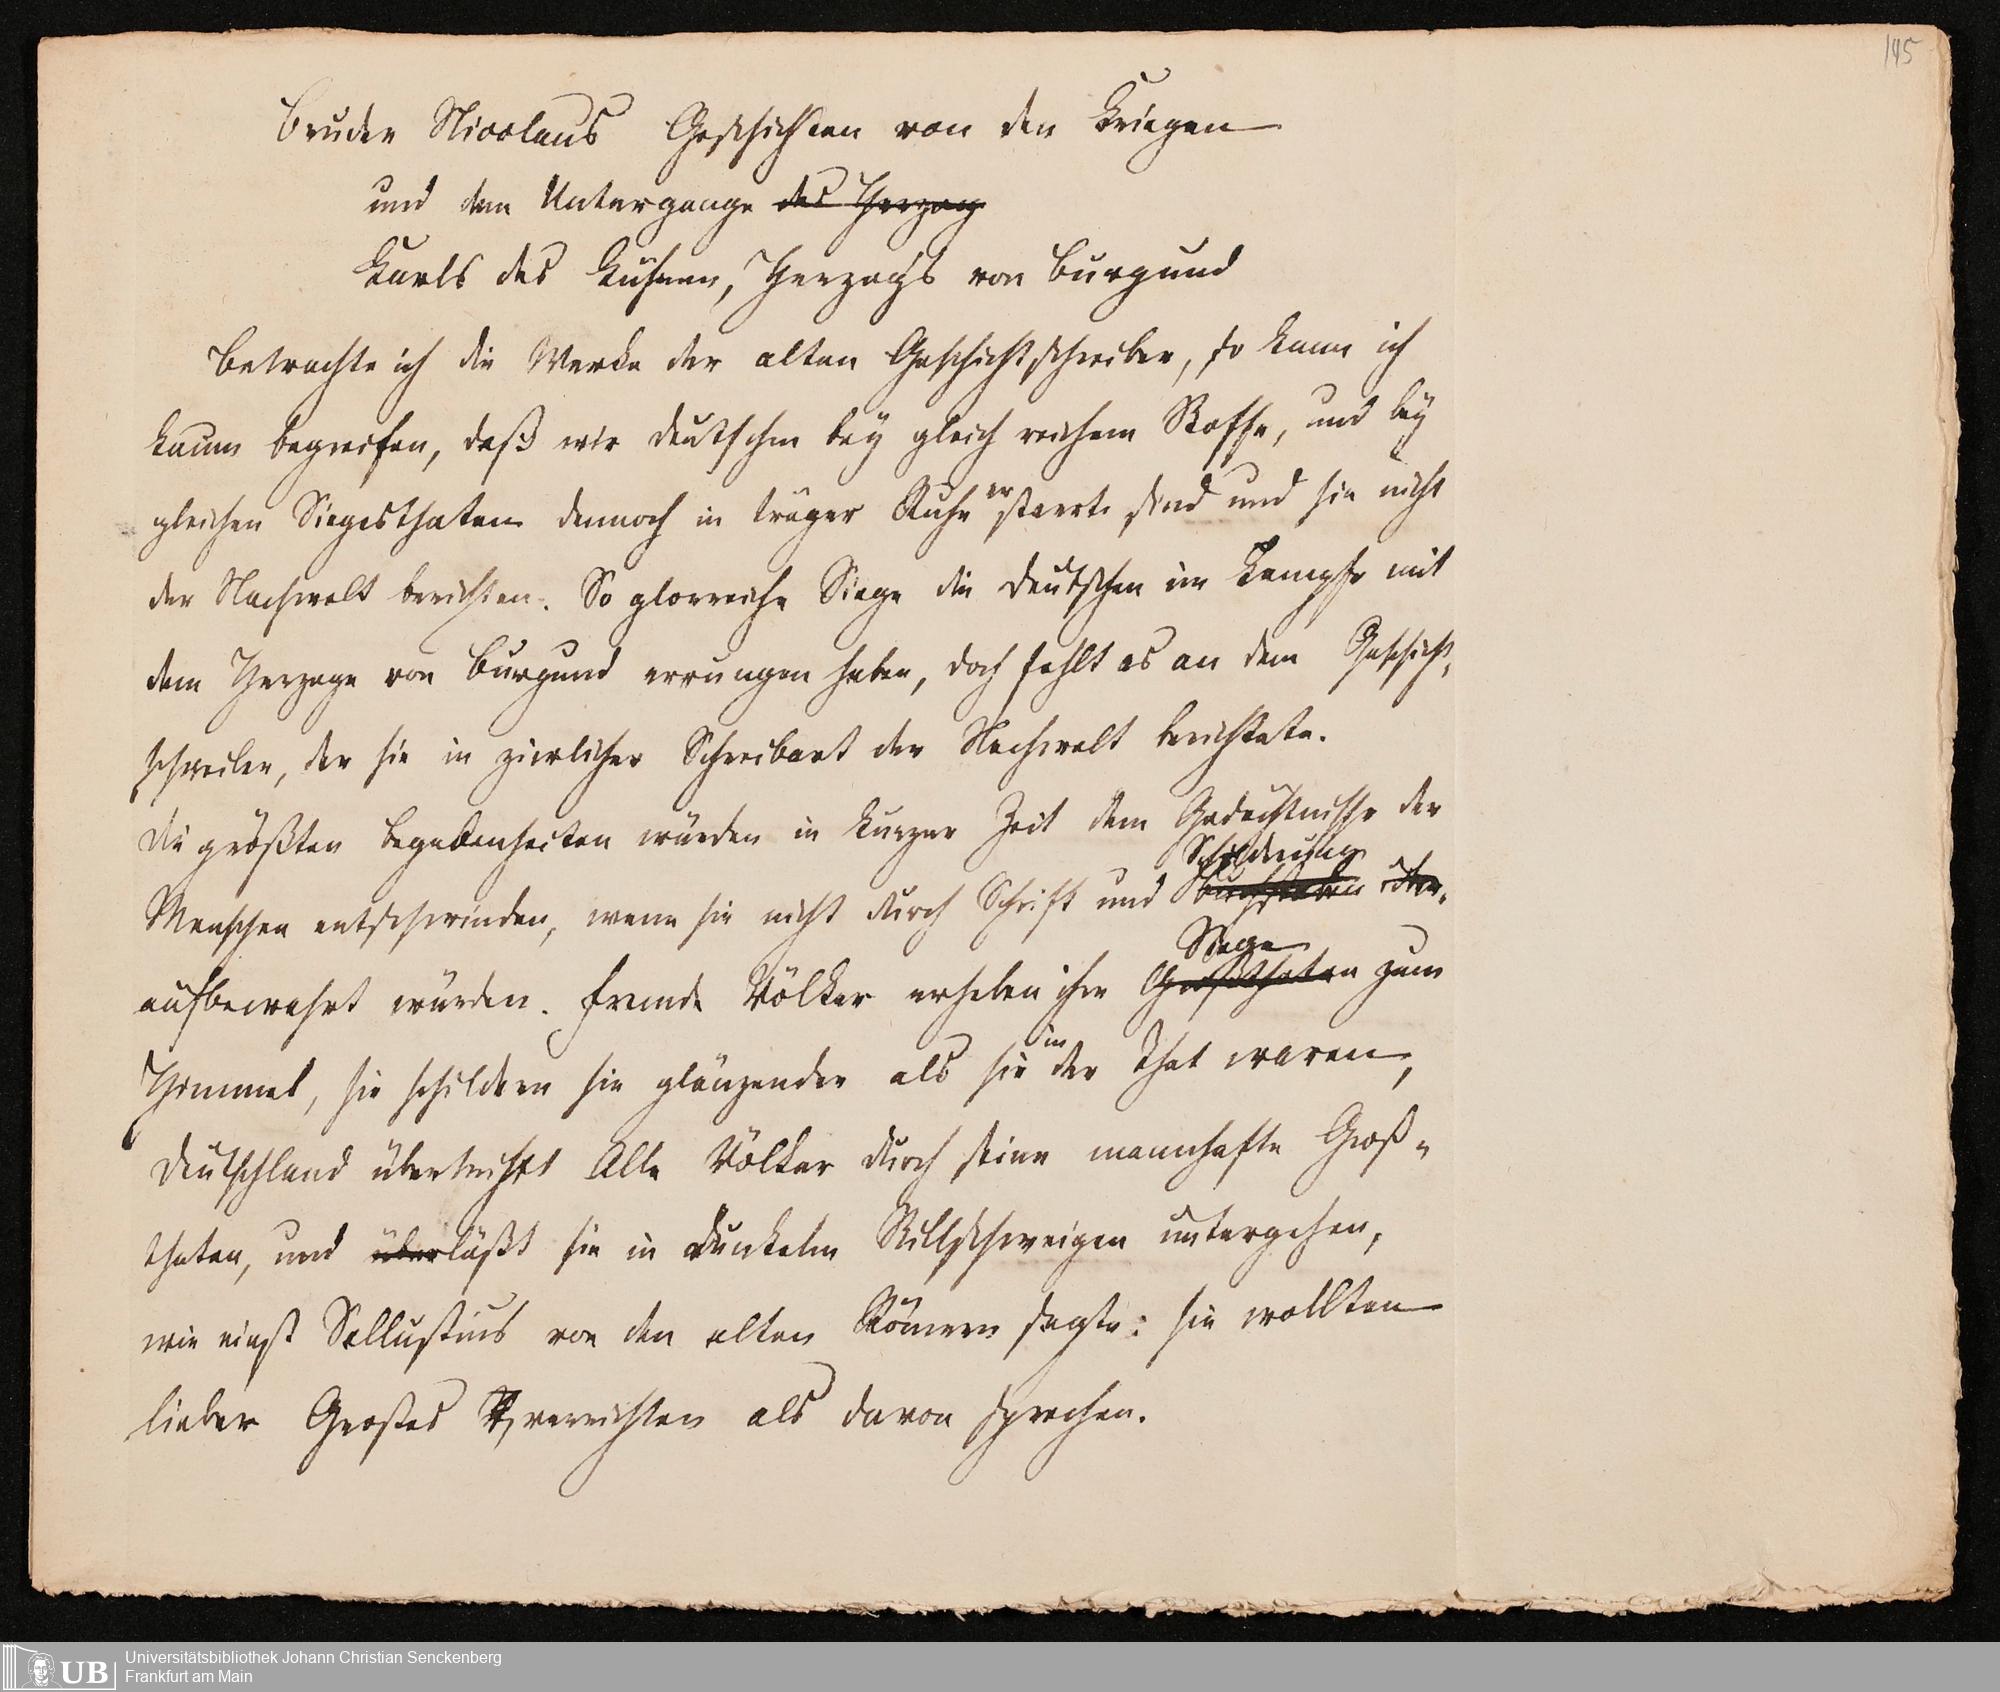 145
Bruder Nicolaus Geschichten von den Kriegen
und dem Untergange des Herzog
Karls des Kühnen, Herzogs von Burgund
Betrachte ich die Werke der alten Geschichtschreiber, so kann ich
kaum begreifen, daß wir Deutschen bey gleich reichem Stoffe, und bey
gleichen Siegesthaten dennoch in träger Ruhe erstarrt sind und sie nicht
der Nachwelt berichten. So glorreiche Siege die Deutschen im Kampfe mit
dem Herzoge von Burgund errungen haben, doch fehlt es an dem Geschicht,
schreiber, der sie in zierlicher Schreibart der Nachwelt berichtete.
Die größten Begebenheiten würden in kurzer Zeit dem Gedächtnisse der
Schilderung
Menschen entschwinden, wenn sie nicht durch Schrift und Buchstaben
Siege
aufbewahrt würden. Fremde Völker erheben ihre Großthaten zum
Himmel, sie schildern sie glänzender als sie in der That waren,
Deutschland übertrifft Alle Völker durch seine mannhafte Groß-
thaten, und überläßt sie in dunkelm Stillschweigen untergehen,
wie einst Sallustius von den alten Römern sagte: sie wollten
lieber Großes verrichten als davon sprechen.
UB
Universitätsbibliothek Johann Christian Senckenberg
Frankfurt am Main